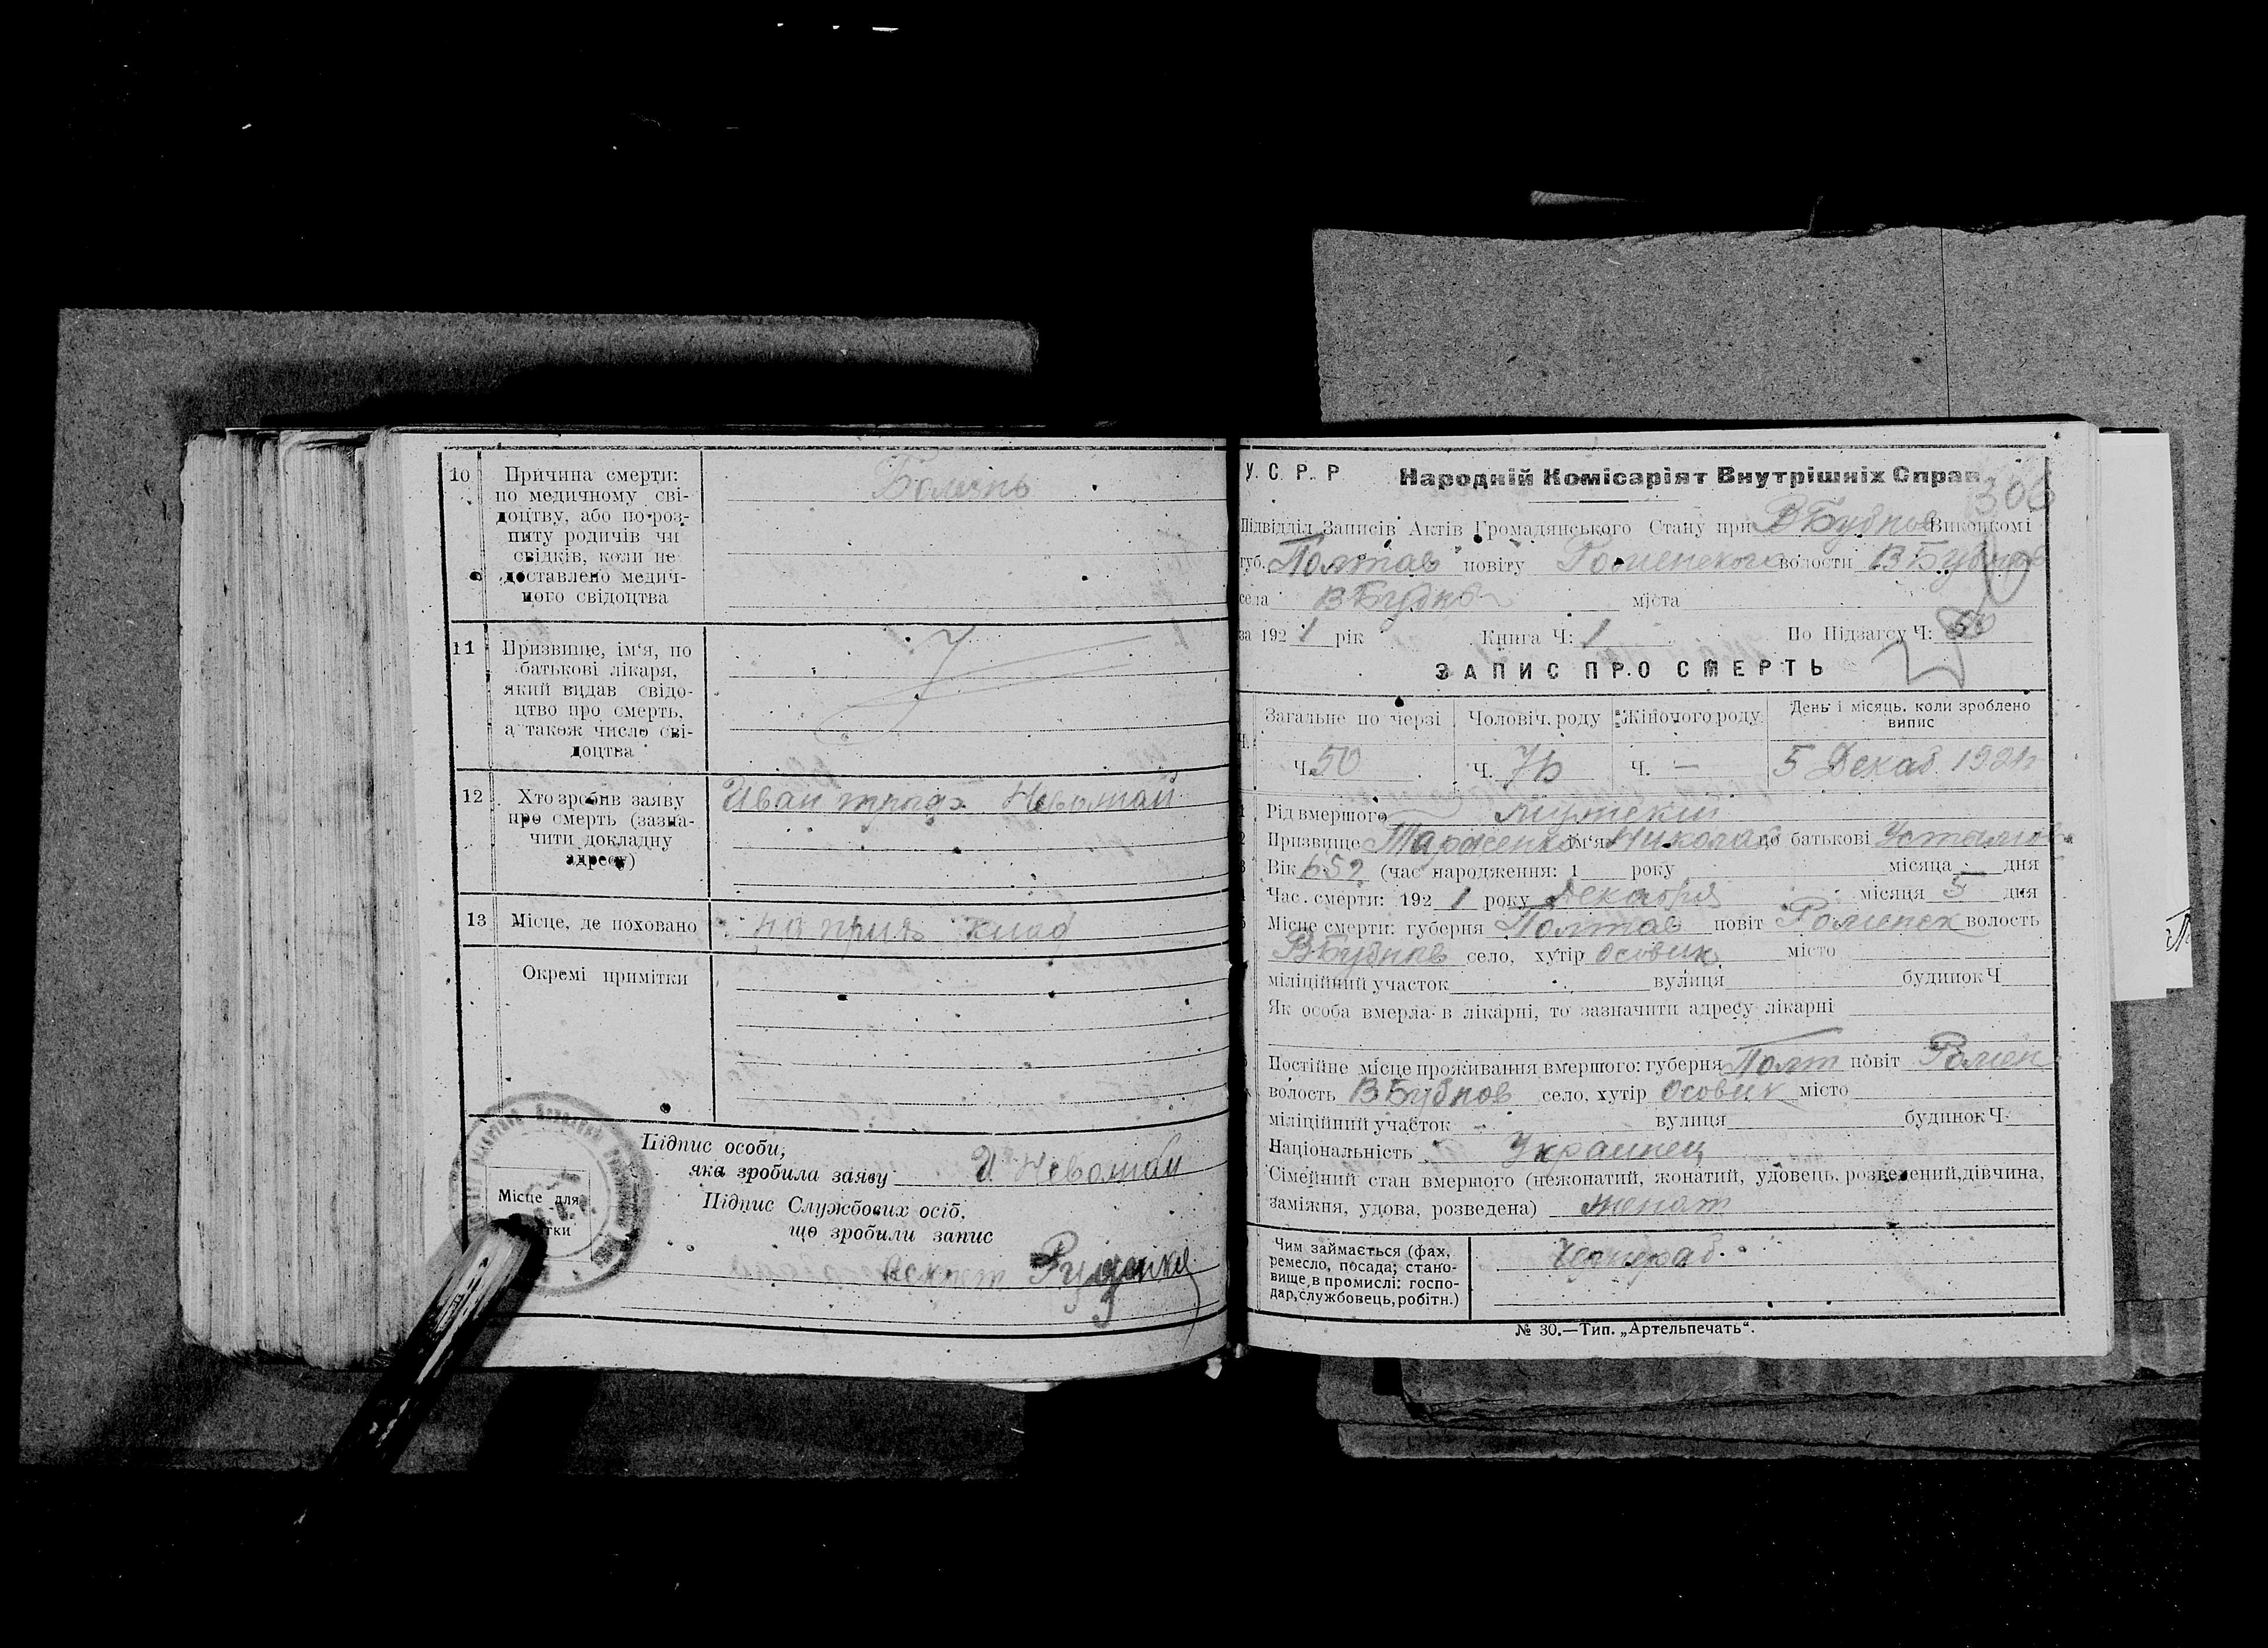 10
Причина смерти:
по медичному сві-
доцтву, або по роз-
питу родичів чи
свідків, коли не
доставлено медич-
ного свідоцтва
11
Призвище, ім'я, по
батькові лікаря,
який видав свідо-
цтво про смерть,
а також число сві-
доцтва
12
Хто зробив заяву
про смерть (зазна-
чити докладну
адресу)
Иван
13
Місце, де поховано
Окремі примітки
Місце для
тки
Підпис особи,
яка зробила заяву И
Підпис Службових осіб,
що зробили запис
Руденко
У. С. Р. Р Народній Комісаріят Внутрішніх Справ
306
Підвідділ Записів Актів Громадянського Стану при В Бубнов Виконкомі
губ. Полтав повіту Роменского волости В Бубнов
села В Бубнов міста
за 1921 рік Книга Ч: 1 По Підзагсу Ч:
ЗАПИС ПРО СМЕРТЬ
Загальне по черзі Чоловіч. роду Жіночого роду День і місяць, коли зроблено випис
Ч. 50 Ч. Ч. — 5 Декаб 1921
Рід вмершого
Призвище ім'я Николай по батькові
Вік (час народження: 1 року місяца дня
Час смерти: 1921 року Декабря місяця 5 дня
Місце смерти: губерня Полтав повіт Роменск волость
В Бубнов село, хутір Осовик місто
міліційний участок вулиця будинок Ч
Як особа вмерла в лікарні, то зазначити адресу лікарні
Постійне місце проживання вмершого: губерня Полт повіт Ромен
волость В Бубнов село, хутір Осовик місто
міліційний участок вулиця будинок Ч
Національність Украинец
Сімейний стан вмершого (нежонатий, жонатий, удовець, розведений, дівчина,
заміжня, удова, розведена) женат
Чим займається (фах,
ремесло, посада; стано-
вище в промислі: госпо-
дар, службовець, робітн.)
№ 30.—Тип. „Артельпечать".